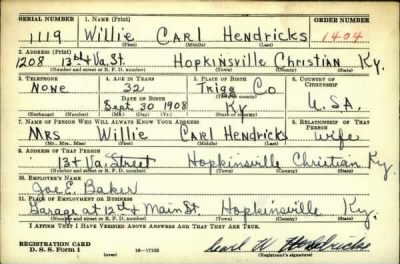 SERIAL NUMBER 1. NAME (Print) ORDER NUMBER
1119 Willie Carl Hendricks 1404
(First) (Middle) (Last)
2. ADDRESS (Print)
1208 13th & Va. St. Hopkinsville Christian Ky.
(Number and street or R. F. D. number) (Town) (County) (State)
3. TELEPHONE 4. AGE IN YEARS 5. PLACE OF BIRTH 6. COUNTRY OF CITIZENSHIP
None 32 Trigg Co
DATE OF BIRTH (Town or county)
Sept. 30 1908 Ky U.S.A.
(Exchange) (Number) (Mo.) (Day) (Yr.) (State or country)
7. NAME OF PERSON WHO WILL ALWAYS KNOW YOUR ADDRESS 8. RELATIONSHIP OF THAT PERSON
Mrs Willie Carl Hendricks wife
(Mr., Mrs., Miss) (First) (Middle) (Last)
9. ADDRESS OF THAT PERSON
13 & Va. Street Hopkinsville Christian Ky.
(Number and street or R. F. D. number) (Town) (County) (State)
10. EMPLOYER'S NAME
Joe E. Baker
11. PLACE OF EMPLOYMENT OR BUSINESS
Garage at 12th & Main St. Hopkinsville Ky.
(Number and street or R. F. D. number) (Town) (County) (State)
I AFFIRM THAT I HAVE VERIFIED ABOVE ANSWERS AND THAT THEY ARE TRUE.
REGISTRATION CARD
D. S. S. Form 1 16-17105 Carl W Hendricks
(over) (Registrant's signature)